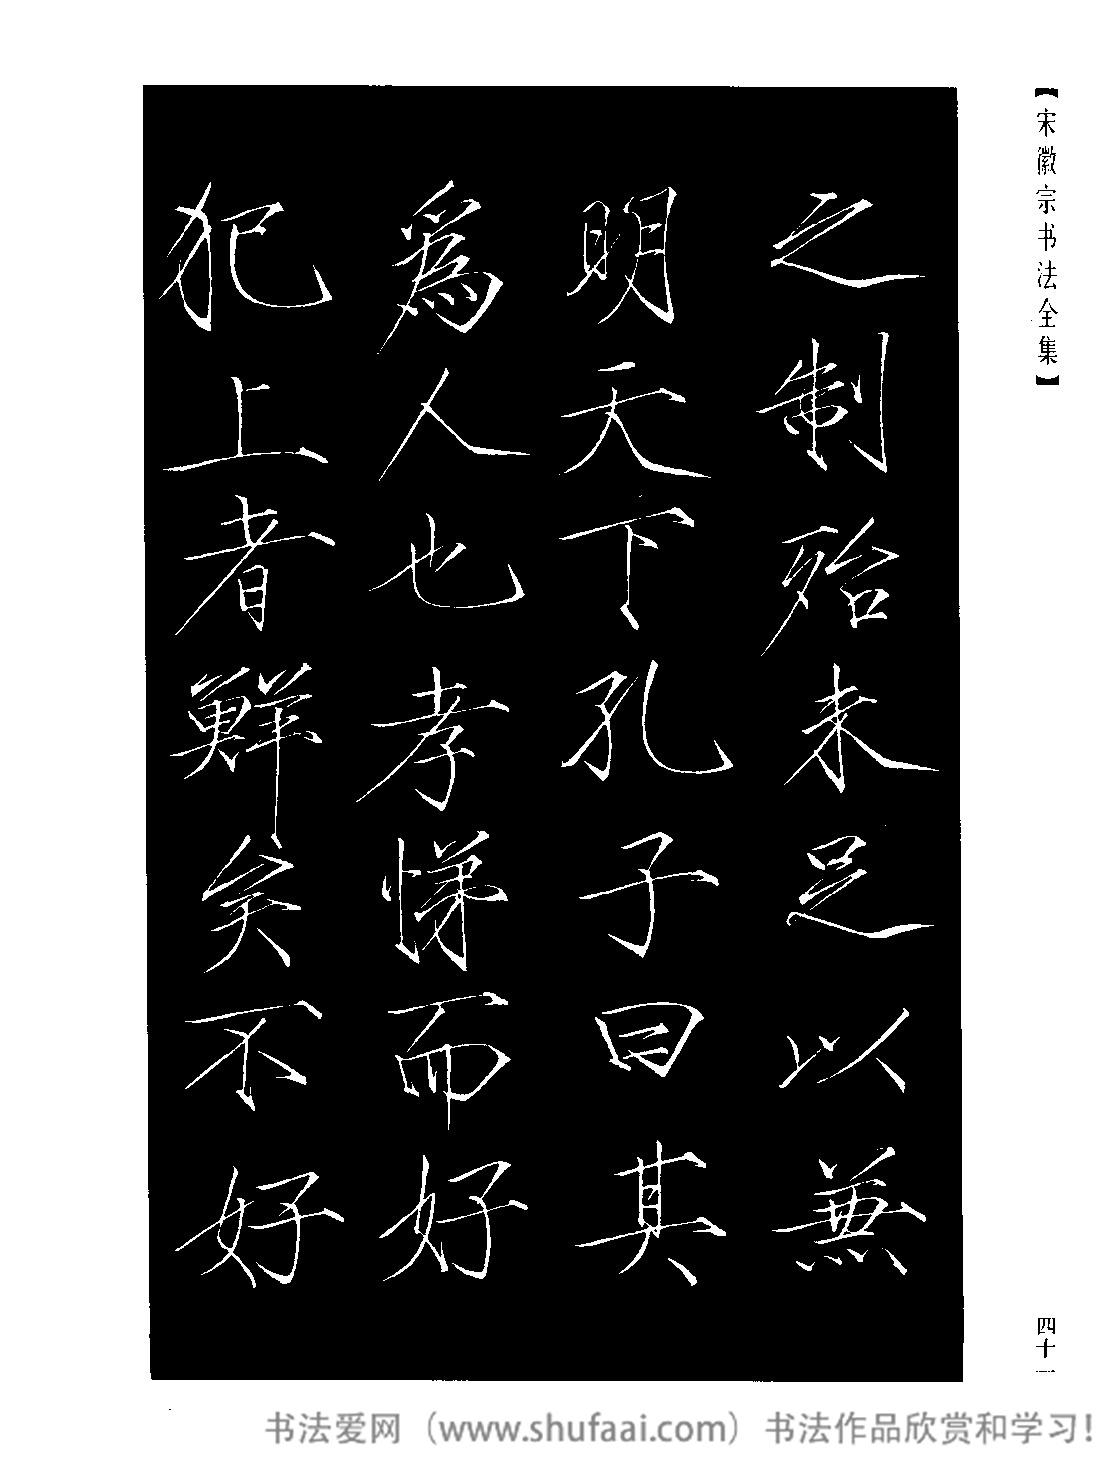 【宋徽宗书法全集】
之制殆未足以兼
明天下孔子曰其
為人也孝悌而好
犯上者鮮矣不好
四十一
书法爱网（www.shufaai.com）书法作品欣赏和学习！